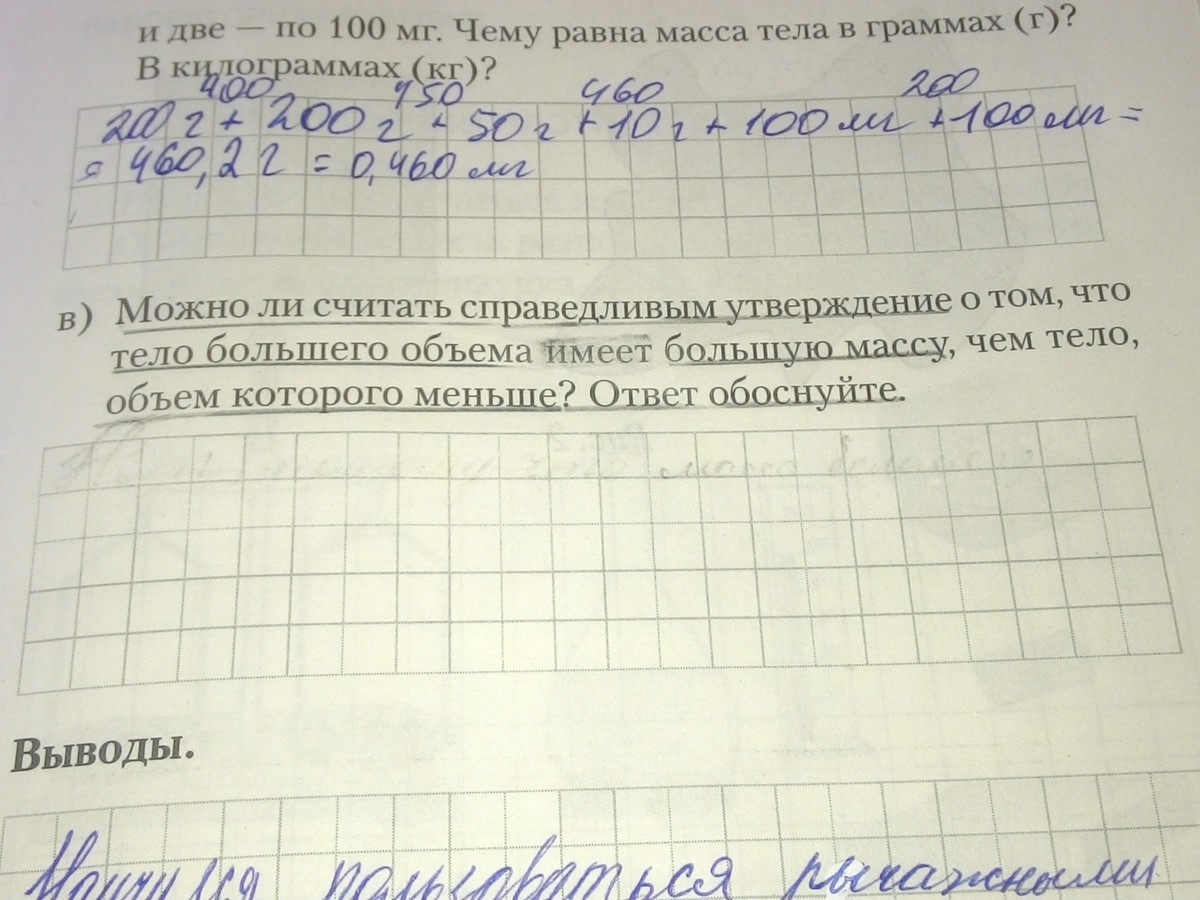 и две — по 100 мг. Чему равна масса тела в граммах (г)?
В килограммах (кг)?
400 450 460 200
200 г + 200 г + 50 г + 10 г + 100 мг + 100 мг =
= 460,2 г = 0,460 мг
в) Можно ли считать справедливым утверждение о том, что
тело большего объема имеет большую массу, чем тело,
объем которого меньше? Ответ обоснуйте.
потому что масса
Выводы.
Научился пользоваться рычажными